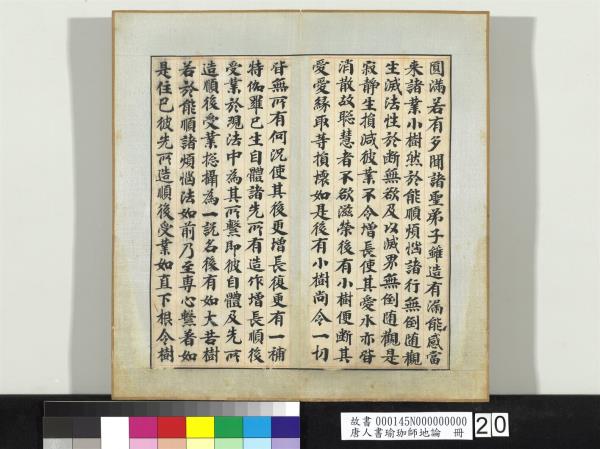 圓滿若有多聞諸聖弟子雖造有漏能感當
来諸業小樹然於能順煩惱諸行無倒随觀
生滅法性於断無欲及以滅界無倒随觀是
寂静生損減彼業不令增長使其愛水亦皆
消散故聡慧者不欲滋榮後有小樹便断其
愛愛縁取等損懐如是後有小樹尚令一切
皆無所有何況使其後更增長復更有一補
特伽羅已生自體諸先所有造作增長順後
受業於現法中為其所繫即彼自體及先所
造順後受業惣攝為一説名後有如大苦樹
若於能順諸煩惱法如前乃至專心繫著如
是住已彼先所造順後受業如直下根令樹
故書 000145N000000000
唐人書瑜珈師地論 冊
20